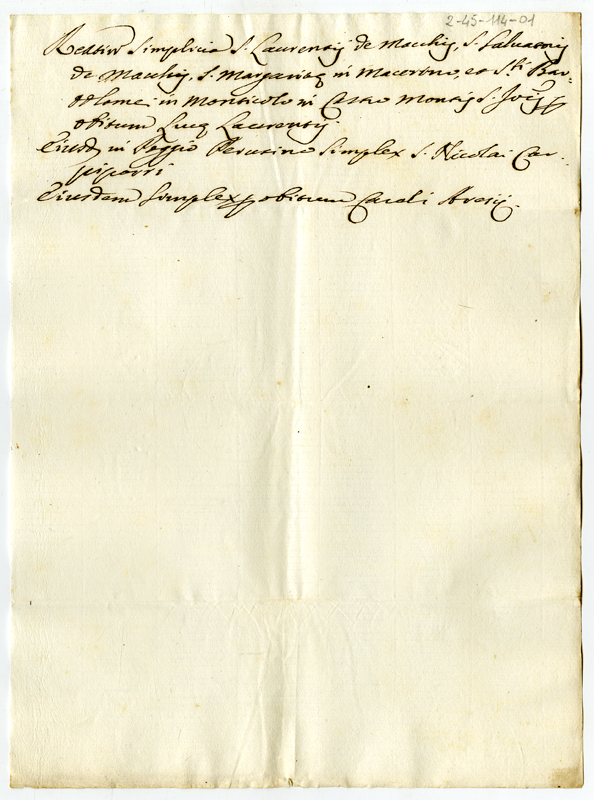 2-45-114-01
Reatin Simplicia S. Laurentij de Macchij, S. Salvatorij
de Macchij, S. Margaritæ in Macerino, et Sti. Bar-
tolomei in Monticolo in Castro Montij S. Joij p
obitum Lucæ Laurentij.
Eiusd in Poggio Perusino Simplex S. Nicolai Car-
pipcorri
Eiusdem Simplex p obitum Caroli Avesij.